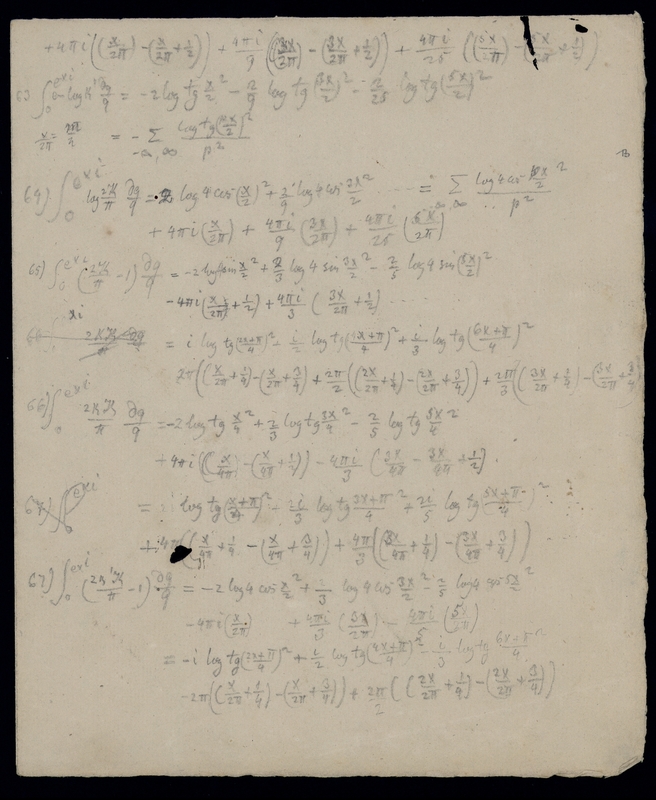 +4πi((x/2π)-(x/2π+1/2)) + 4πi/9 ((3x/2π)-(3x/2π+1/2)) + 4πi/25 ((5x/2π)-(5x/2π+1/2))
63) ∫₀^{e^{xi}} -log k' ∂q/q = -2 log tg x/2 ² - 2/9 log tg (3x/2)² - 2/25 log tg (5x/2)²
x/2π = = -Σ_{-∞,∞} log tg (px/2)² / p²
64) ∫₀^{e^{xi}} log 2K/π ∂q/q = 2 log 4 cos (x/2)² + 2/9 log 4 cos 3x/2 ² ···· = Σ_{-∞,∞} log 4 cos px/2 ² / p²
+ 4πi (x/2π) + 4πi/9 (3x/2π) + 4πi/25 (5x/2π)
65) ∫₀^{e^{xi}} (2K/π -1) ∂q/q = -2 log 4 sin x/2 ² + 2/3 log 4 sin 3x/2 ² - 2/5 log 4 sin (5x/2)²
-4πi (x/2π+1/2) + 4πi/3 (3x/2π+1/2) ···
= i log tg (2x+π/4)² - i/2 log tg (4x+π/4)² + i/3 log tg (6x+π/4)²
2π((x/2π+1/4)-(x/2π+3/4)) + 2π/2 ((2x/2π+1/4)-(2x/2π+3/4)) + 2π/3 ((3x/2π+1/4)-(3x/2π+3/4))
66) ∫₀^{e^{xi}} 2kK/π ∂q/q = -2 log tg x/4 ² + 2/3 log tg 3x/4 ² - 2/5 log tg 5x/4 ²
+4πi ((x/4π)-(x/4π+1/2)) - 4πi/3 (3x/4π - 3x/4π+1/2)
67) ∫₀^{e^{xi}} = log tg (x+π/4)² - 2i/3 log tg 3x+π/4 ² + 2i/5 log tg 5x+π/4 ²
+ 4π ((x/4π+1/4)-(x/4π+3/4)) + 4π/3 ((3x/4π+1/4)-(3x/4π+3/4))
67) ∫₀^{e^{xi}} (2k'K/π -1) ∂q/q = -2 log 4 cos x/2 ² + 2/3 log 4 cos 3x/2 ² - 2/5 log 4 cos 5x/2 ²
-4πi (x/2π) + 4πi/3 (3x/2π) - 4πi/5 (5x/2π)
= -i log tg (2x+π/4)² + i/2 log tg (4x+π/4)² - i/3 log tg 6x+π/4 ²
-2π ((x/2π+1/4)-(x/2π+3/4)) + 2π/2 ((2x/2π+1/4)-(2x/2π+3/4))